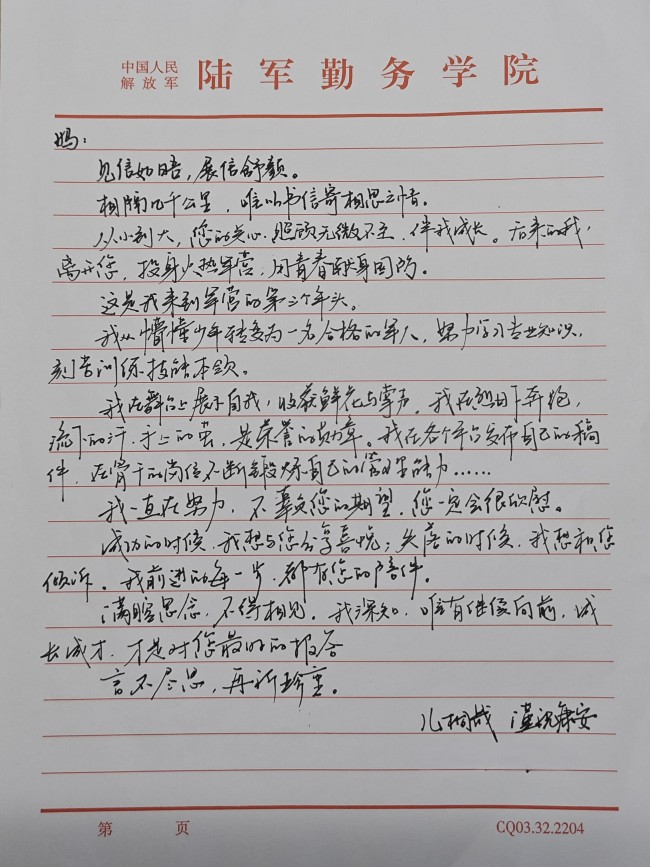 中国人民
解放军 陆军勤务学院
妈：
见信如晤，展信舒颜。
相隔几千公里，唯以书信寄相思之情。
从小到大，您的关心、照顾无微不至，伴我成长。后来的我，
离开您，投身火热军营，用青春献身国防。
这是我来到军营的第三个年头。
我从懵懂少年转变为一名合格的军人，努力学习专业知识，
刻苦训练技能本领。
我在舞台上展示自我，收获鲜花与掌声，我在烈日下奔跑，
流下的汗，手上的茧，是荣誉的勋章。我在各个平台发布自己的稿
件，在骨干的岗位不断锻炼自己的管理能力……
我一直在努力，不辜负您的期望，您一定会很欣慰。
成功的时候，我想与您分享喜悦；失落的时候，我想和您
倾诉。我前进的每一步，都有您的陪伴。
满腔思念，不得相见。我深知，唯有继续向前，成
长成才，才是对您最好的报答
言不尽思，再祈珍重。
儿桐战 谨祝康安
第 页 CQ03.32.2204